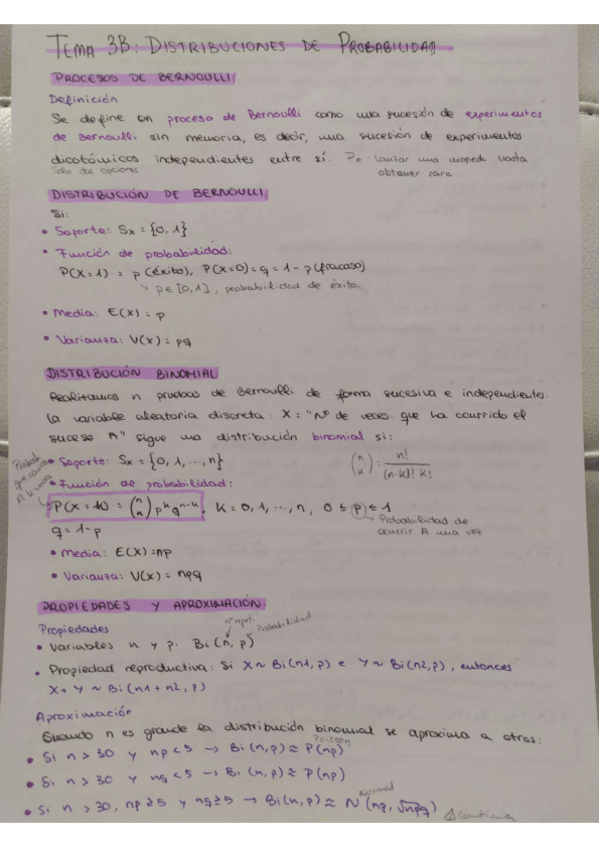 TEMA 3B: DISTRIBUCIONES DE PROBABILIDAD
PROCESOS DE BERNOULLI
Definición
Se define en proceso de Bernoulli como una sucesión de experimentos
de Bernoulli sin memoria, es decir, una sucesión de experimentos
dicotómicos independientes entre sí. Pe: lanzar una moneda hasta
solo dos opciones obtener cara
DISTRIBUCIÓN DE BERNOULLI
Si:
• Soporte: Sx = {0, 1}
• Función de probabilidad:
P(X=1) = p (éxito), P(X=0) = q = 1-p (fracaso)
↳ p∈[0,1], probabilidad de éxito.
• Media: E(X) = p
• Varianza: V(X) = pq
DISTRIBUCIÓN BINOMIAL
Realizamos n pruebas de Bernoulli de forma sucesiva e independiente.
La variable aleatoria discreta: X = "Nº de veces que ha ocurrido el
suceso A" sigue una distribución binomial si:
• Soporte: Sx = {0, 1, ..., n} (n k) = n! / (n-k)! k!
• Función de probabilidad:
P(X = k) = (n k) p^k q^n-k, k = 0, 1, ..., n, 0 ≤ p ≤ 1
q = 1-p ↳ Probabilidad de
ocurrir A una vez
• Media: E(X) = np
• Varianza: V(X) = npq
PROPIEDADES Y APROXIMACIÓN
Propiedades
• Variables n y p. Bi(n, p) Probabilidad
• Propiedad reproductiva: Si X ~ Bi(n1, p) e Y ~ Bi(n2, p), entonces
X + Y ~ Bi(n1 + n2, p)
Aproximación
Cuando n es grande la distribución binomial se aproxima a otras:
• Si n > 30 y np < 5 → Bi(n, p) ≈ P(np) Poisson
• Si n > 30 y nq < 5 → Bi(n, p) ≈ P(nq)
• Si n > 30, np ≥ 5 y nq ≥ 5 → Bi(n, p) ≈ N(nq, √npq) Normal